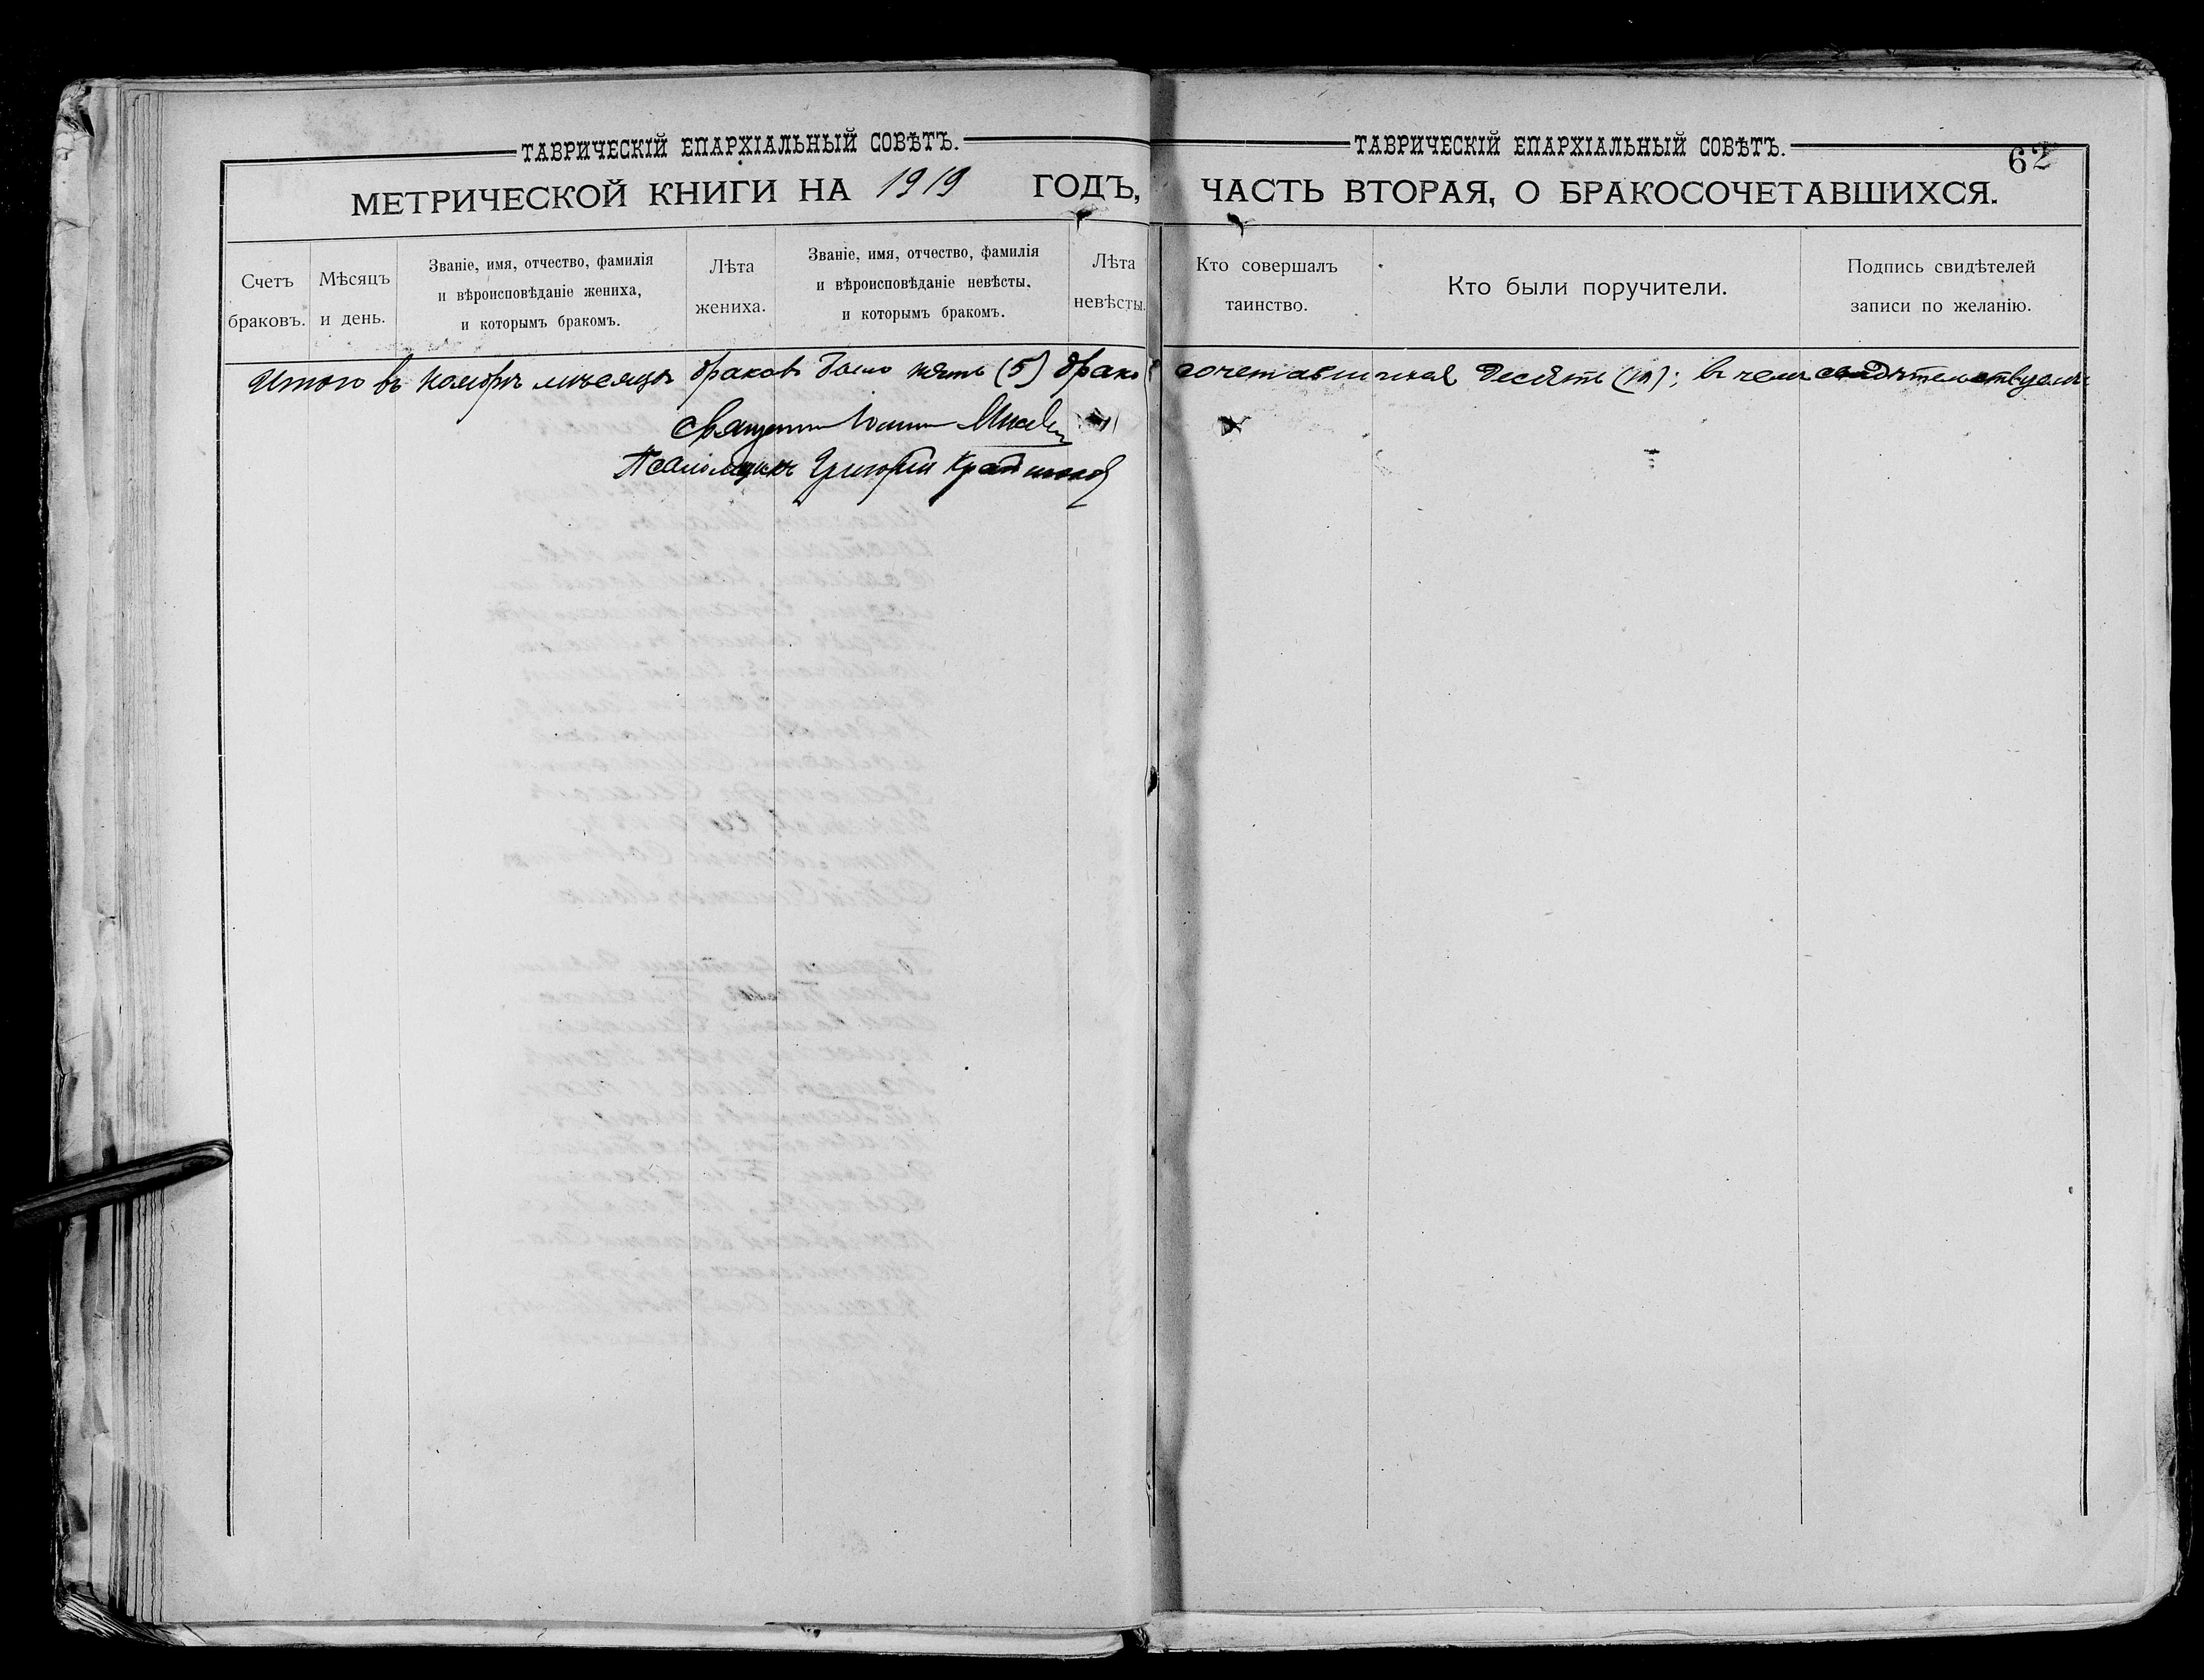 ТАВРИЧЕСКІЙ ЕПАРХІАЛЬНЫЙ СОВѢТЪ.
МЕТРИЧЕСКОЙ КНИГИ НА 1919 ГОДЪ,
Счетъ браковъ.
Мѣсяцъ и день.
Званіе, имя, отчество, фамилія
и вѣроисповѣданіе жениха,
и которымъ бракомъ.
Лѣта жениха.
Званіе, имя, отчество, фамилія
и вѣроисповѣданіе невѣсты,
и которымъ бракомъ.
Лѣта невѣсты.
ТАВРИЧЕСКІЙ ЕПАРХІАЛЬНЫЙ СОВѢТЪ.
62
ЧАСТЬ ВТОРАЯ, О БРАКОСОЧЕТАВШИХСЯ.
Кто совершалъ
таинство.
Кто были поручители.
Подпись свидѣтелей
записи по желанію.
Итого въ ноябрѣ мѣсяцѣ браковъ было пять (5) брако сочетавшихся десять (10); въ чемъ свидѣтельствуемъ
Священникъ Іоаннъ
Псаломщикъ Григорій